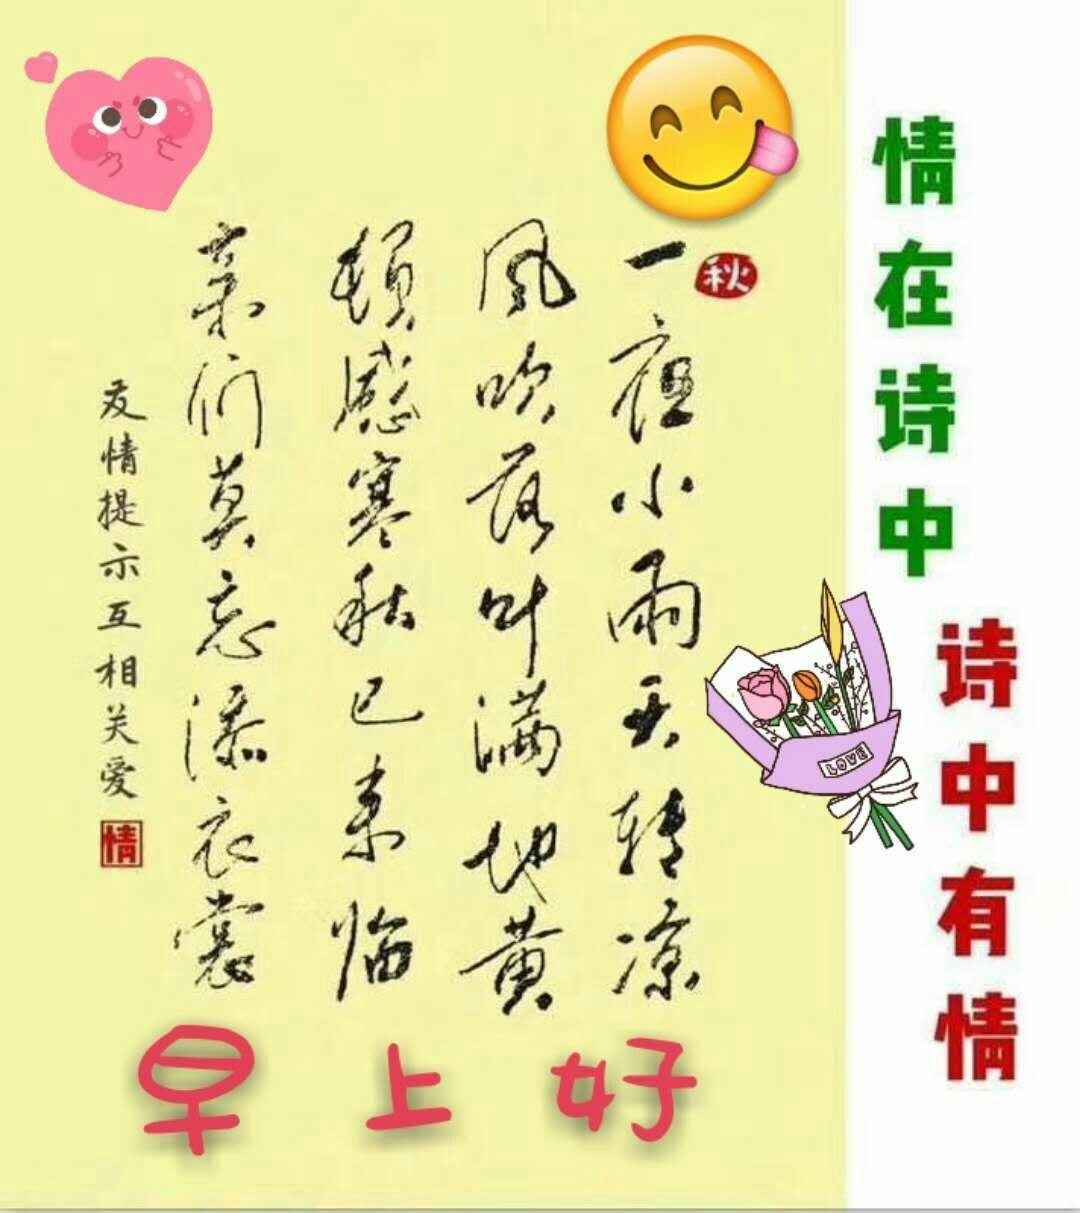 情在诗中
诗中有情
秋
一夜小雨天转凉
风吹落叶满地黄
顿感寒秋已来临
亲们莫忘添衣裳
友情提示互相关爱
情
LOVE
早上好